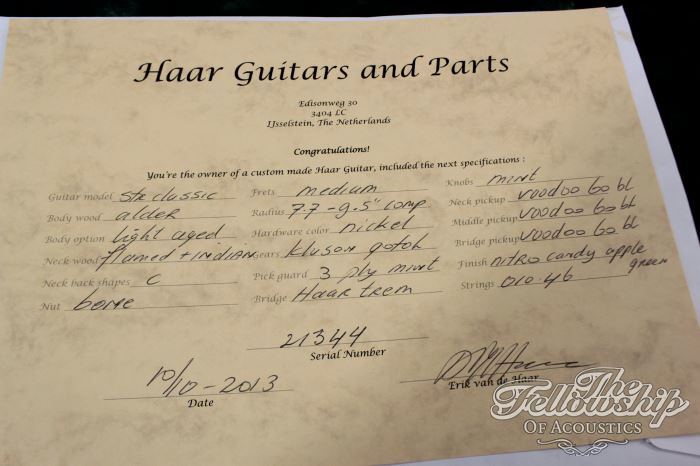 Haar Guitars and Parts
Edisonweg 30
3404 LC
IJsselstein, The Netherlands
Congratulations!
You're the owner of a custom made Haar Guitar, included the next specifications :
Guitar model str classic
Body wood alder
Body option light aged
Neck wood flamed + indian
Neck back shapes C
Nut bone
Frets medium
Radius 7.7 - 9.5" comp.
Hardware color nickel
Gears kluson gotoh
Pick guard 3 ply mint
Bridge Haar trem
Knobs mint
Neck pickup voodoo 60 bl
Middle pickup voodoo 60 bl
Bridge pickup voodoo 60 bl
Finish nitro candy apple
green
Strings 010.46
21344
Serial Number
10/10-2013
Date
Erik van de Haar
The
Fellowship
Of Acoustics